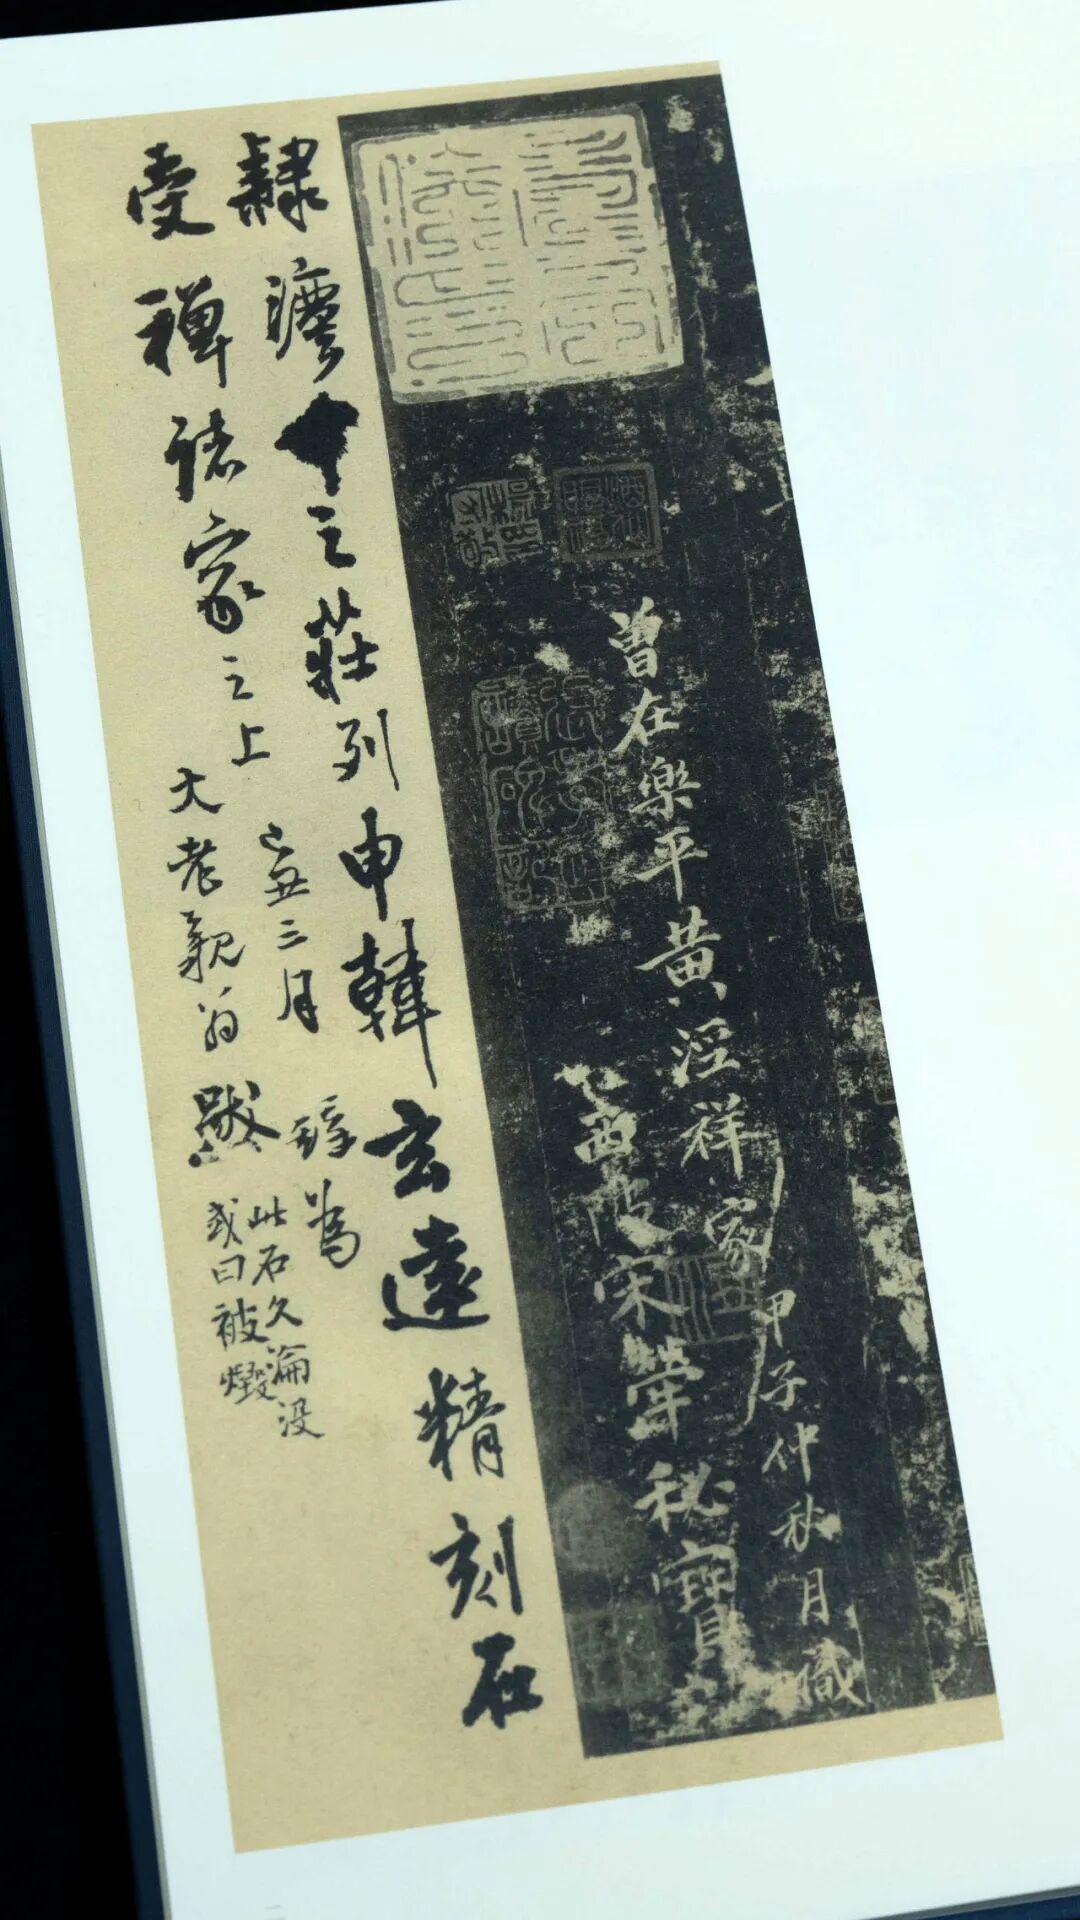 曾在樂平黃涇祥家
甲子仲秋月識
西陂宋犖秘寶
隸灋中之莊列申韓玄遠精刻在
受禪諸家之上
己丑三月 鐸為
大老親翁跋
此石久淪沒
或曰被燬